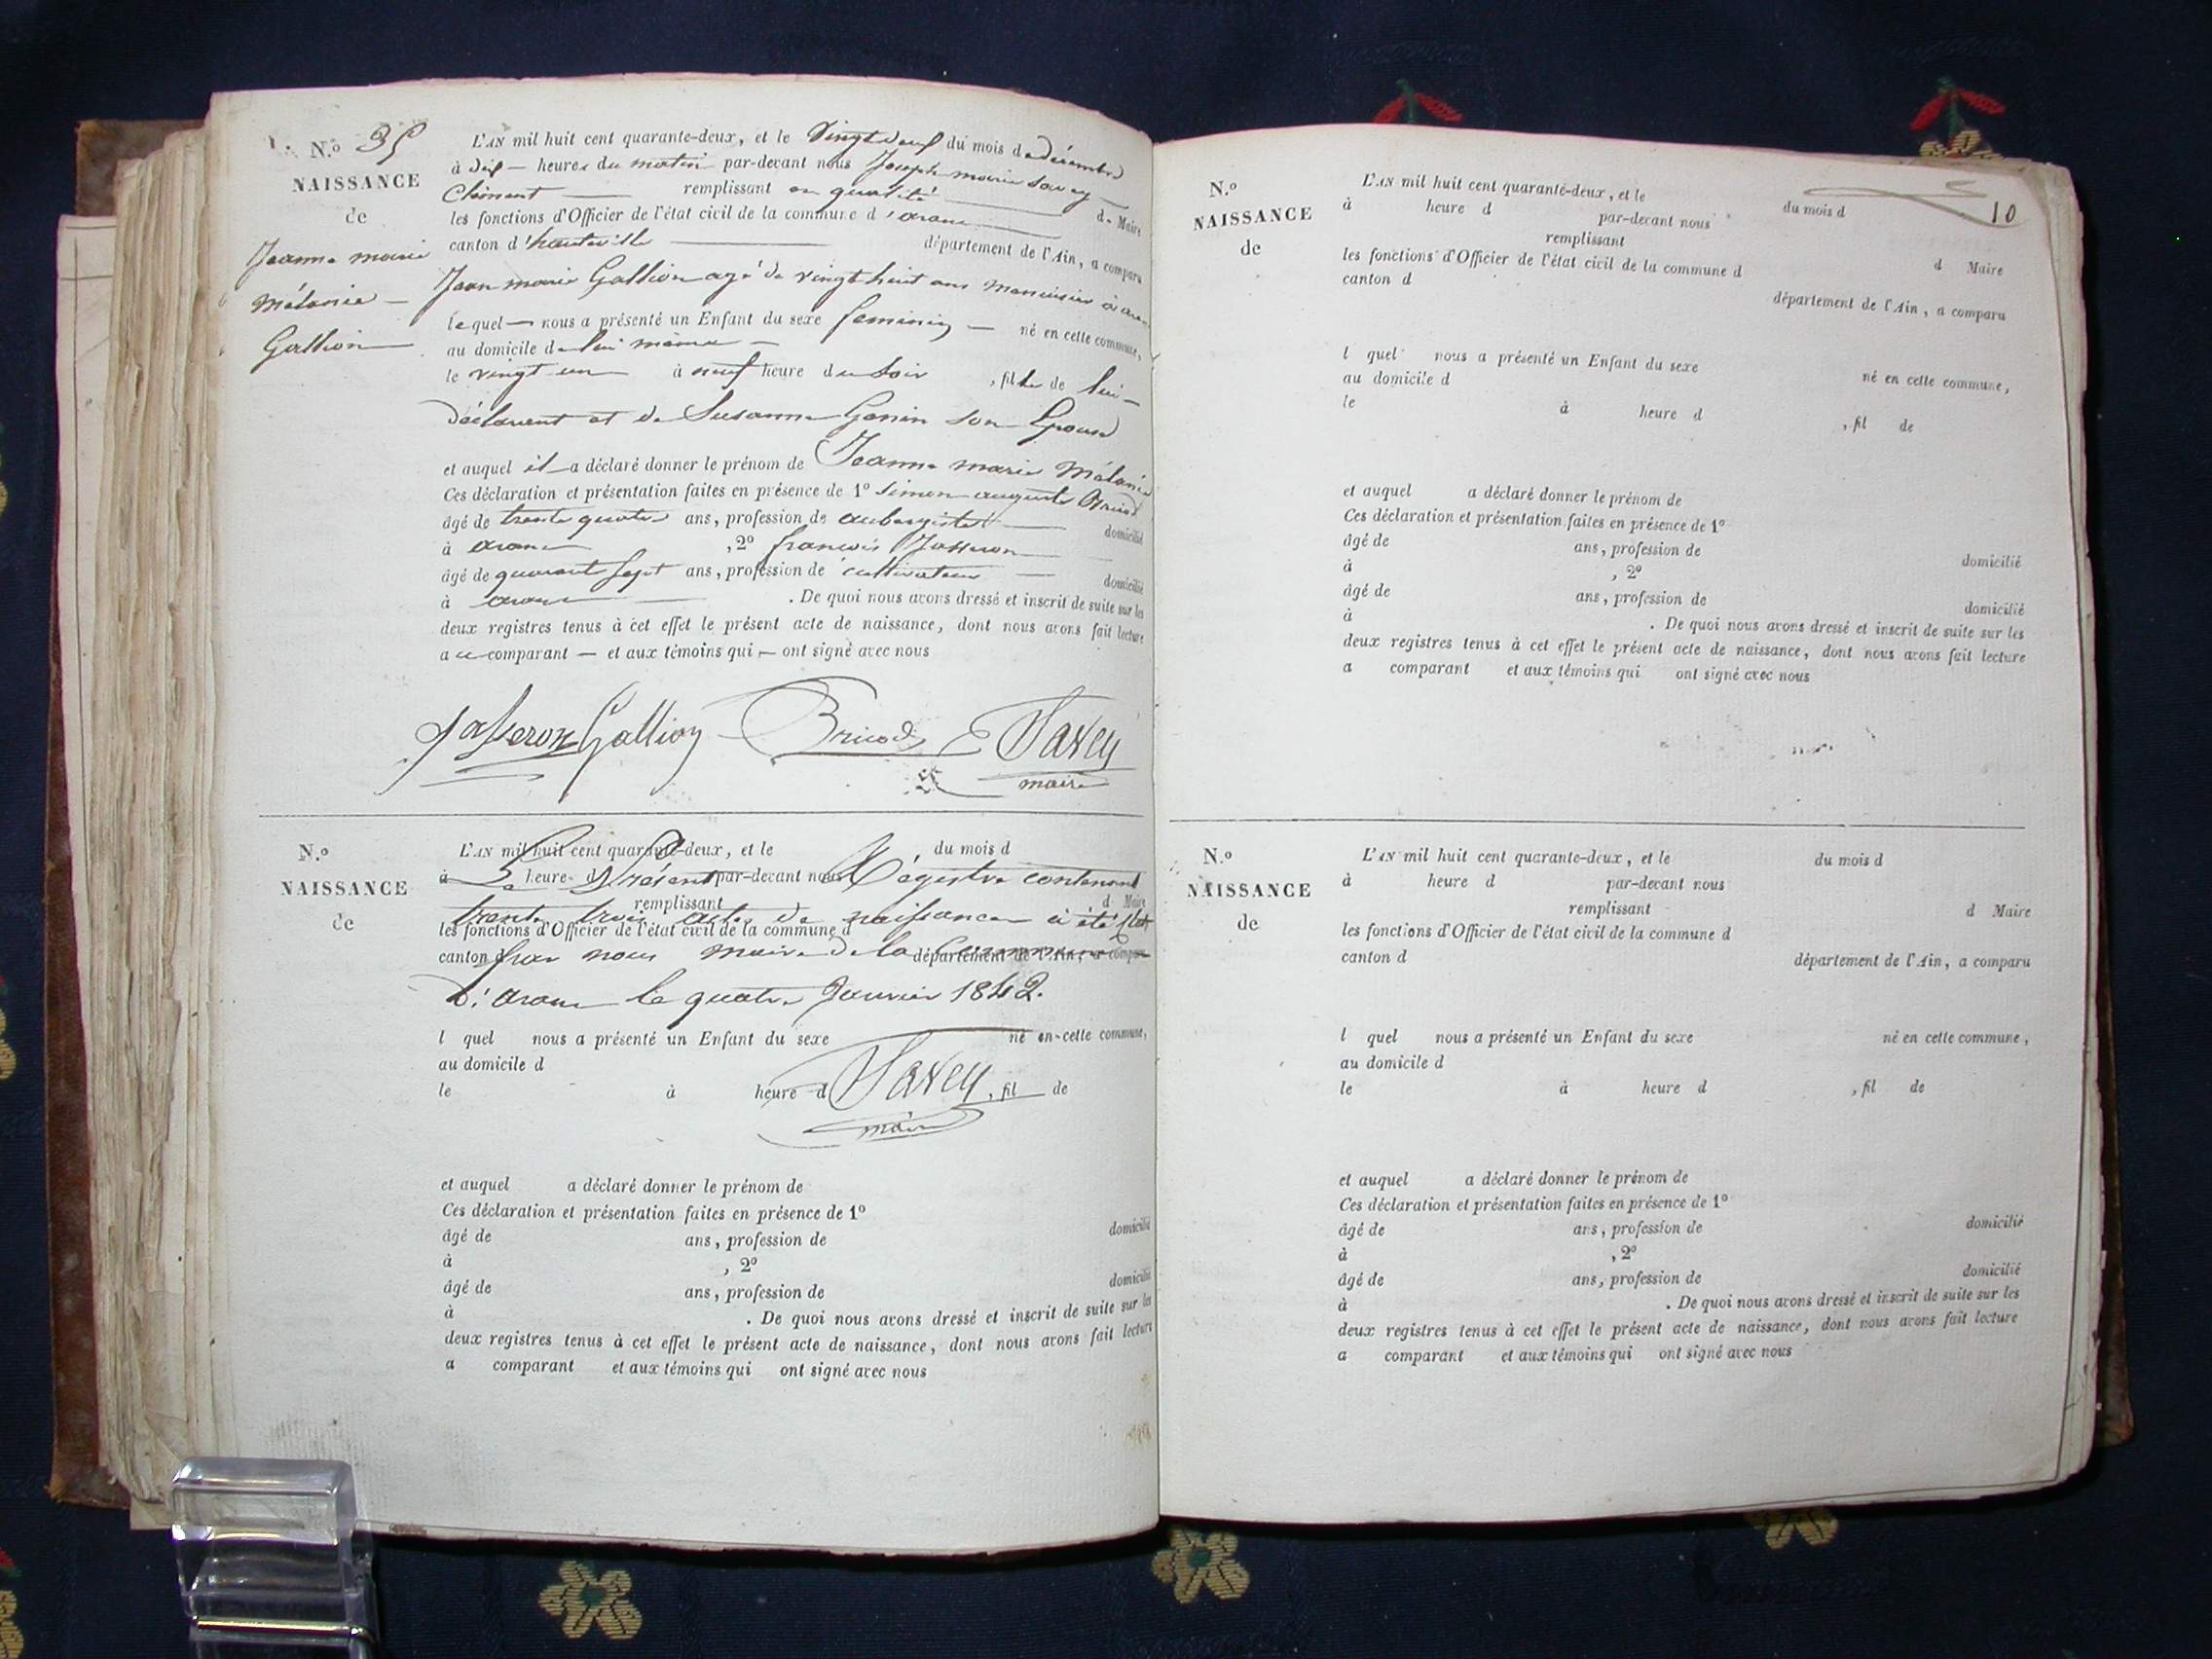 N.º 35
NAISSANCE
de
Jeanne marie
Mélanie
Gallion
L'AN mil huit cent quarante-deux, et le vingt deux du mois de décembre
à dix heures du matin par-devant nous Joseph marie Savey
Clément remplissant en qualité de Maire
les fonctions d'Officier de l'état civil de la commune d'aranc
canton d'hauteville département de l'Ain, a comparu
Jean marie Gallion agé de vingt huit ans menuisier à aranc
lequel nous a présenté un Enfant du sexe feminin né en cette commune,
au domicile de lui même
le vingt un à neuf heure du soir , fille de lui
déclarant et de Susanne Genin son Epouse
et auquel il a déclaré donner le prénom de Jeanne marie Mélanie
Ces déclaration et présentation faites en présence de 1º Simon auguste Bricod
âgé de trente quatre ans, profession de aubergiste domicilié
à aranc , 2º francois Jasseron
âgé de quarante sept ans, profession de cultivateur domicilié
à aranc . De quoi nous avons dressé et inscrit de suite sur les
deux registres tenus à cet effet le présent acte de naissance, dont nous avons fait lecture
au comparant et aux témoins qui ont signé avec nous
Jasseron Gallion Bricod Savey
maire
N.º
NAISSANCE
de
L'AN mil huit cent quarante-deux, et le du mois d
à heure d par-devant nous
Le Présent Régistre contenant
remplissant d Maire
trente trois actes de naissance a été
les fonctions d'Officier de l'état civil de la commune d
canton d département de l'Ain, a comparu
par nous maire de la Commune
D'aranc le quatre Janvier 1842.
l quel nous a présenté un Enfant du sexe né en cette commune,
au domicile d
le à heure d , fil de
Savey
maire
et auquel a déclaré donner le prénom de
Ces déclaration et présentation faites en présence de 1º
âgé de ans, profession de domicilié
à , 2º
âgé de ans, profession de domicilié
à . De quoi nous avons dressé et inscrit de suite sur les
deux registres tenus à cet effet le présent acte de naissance, dont nous avons fait lecture
a comparant et aux témoins qui ont signé avec nous
10
N.º
NAISSANCE
de
L'AN mil huit cent quarante-deux, et le du mois d
à heure d par-devant nous
remplissant d Maire
les fonctions d'Officier de l'état civil de la commune d
canton d département de l'Ain, a comparu
l quel nous a présenté un Enfant du sexe né en cette commune,
au domicile d
le à heure d , fil de
et auquel a déclaré donner le prénom de
Ces déclaration et présentation faites en présence de 1º
âgé de ans, profession de domicilié
à , 2º
âgé de ans, profession de domicilié
à . De quoi nous avons dressé et inscrit de suite sur les
deux registres tenus à cet effet le présent acte de naissance, dont nous avons fait lecture
a comparant et aux témoins qui ont signé avec nous
N.º
NAISSANCE
de
L'AN mil huit cent quarante-deux, et le du mois d
à heure d par-devant nous
remplissant d Maire
les fonctions d'Officier de l'état civil de la commune d
canton d département de l'Ain, a comparu
l quel nous a présenté un Enfant du sexe né en cette commune,
au domicile d
le à heure d , fil de
et auquel a déclaré donner le prénom de
Ces déclaration et présentation faites en présence de 1º
âgé de ans, profession de domicilié
à , 2º
âgé de ans, profession de domicilié
à . De quoi nous avons dressé et inscrit de suite sur les
deux registres tenus à cet effet le présent acte de naissance, dont nous avons fait lecture
a comparant et aux témoins qui ont signé avec nous